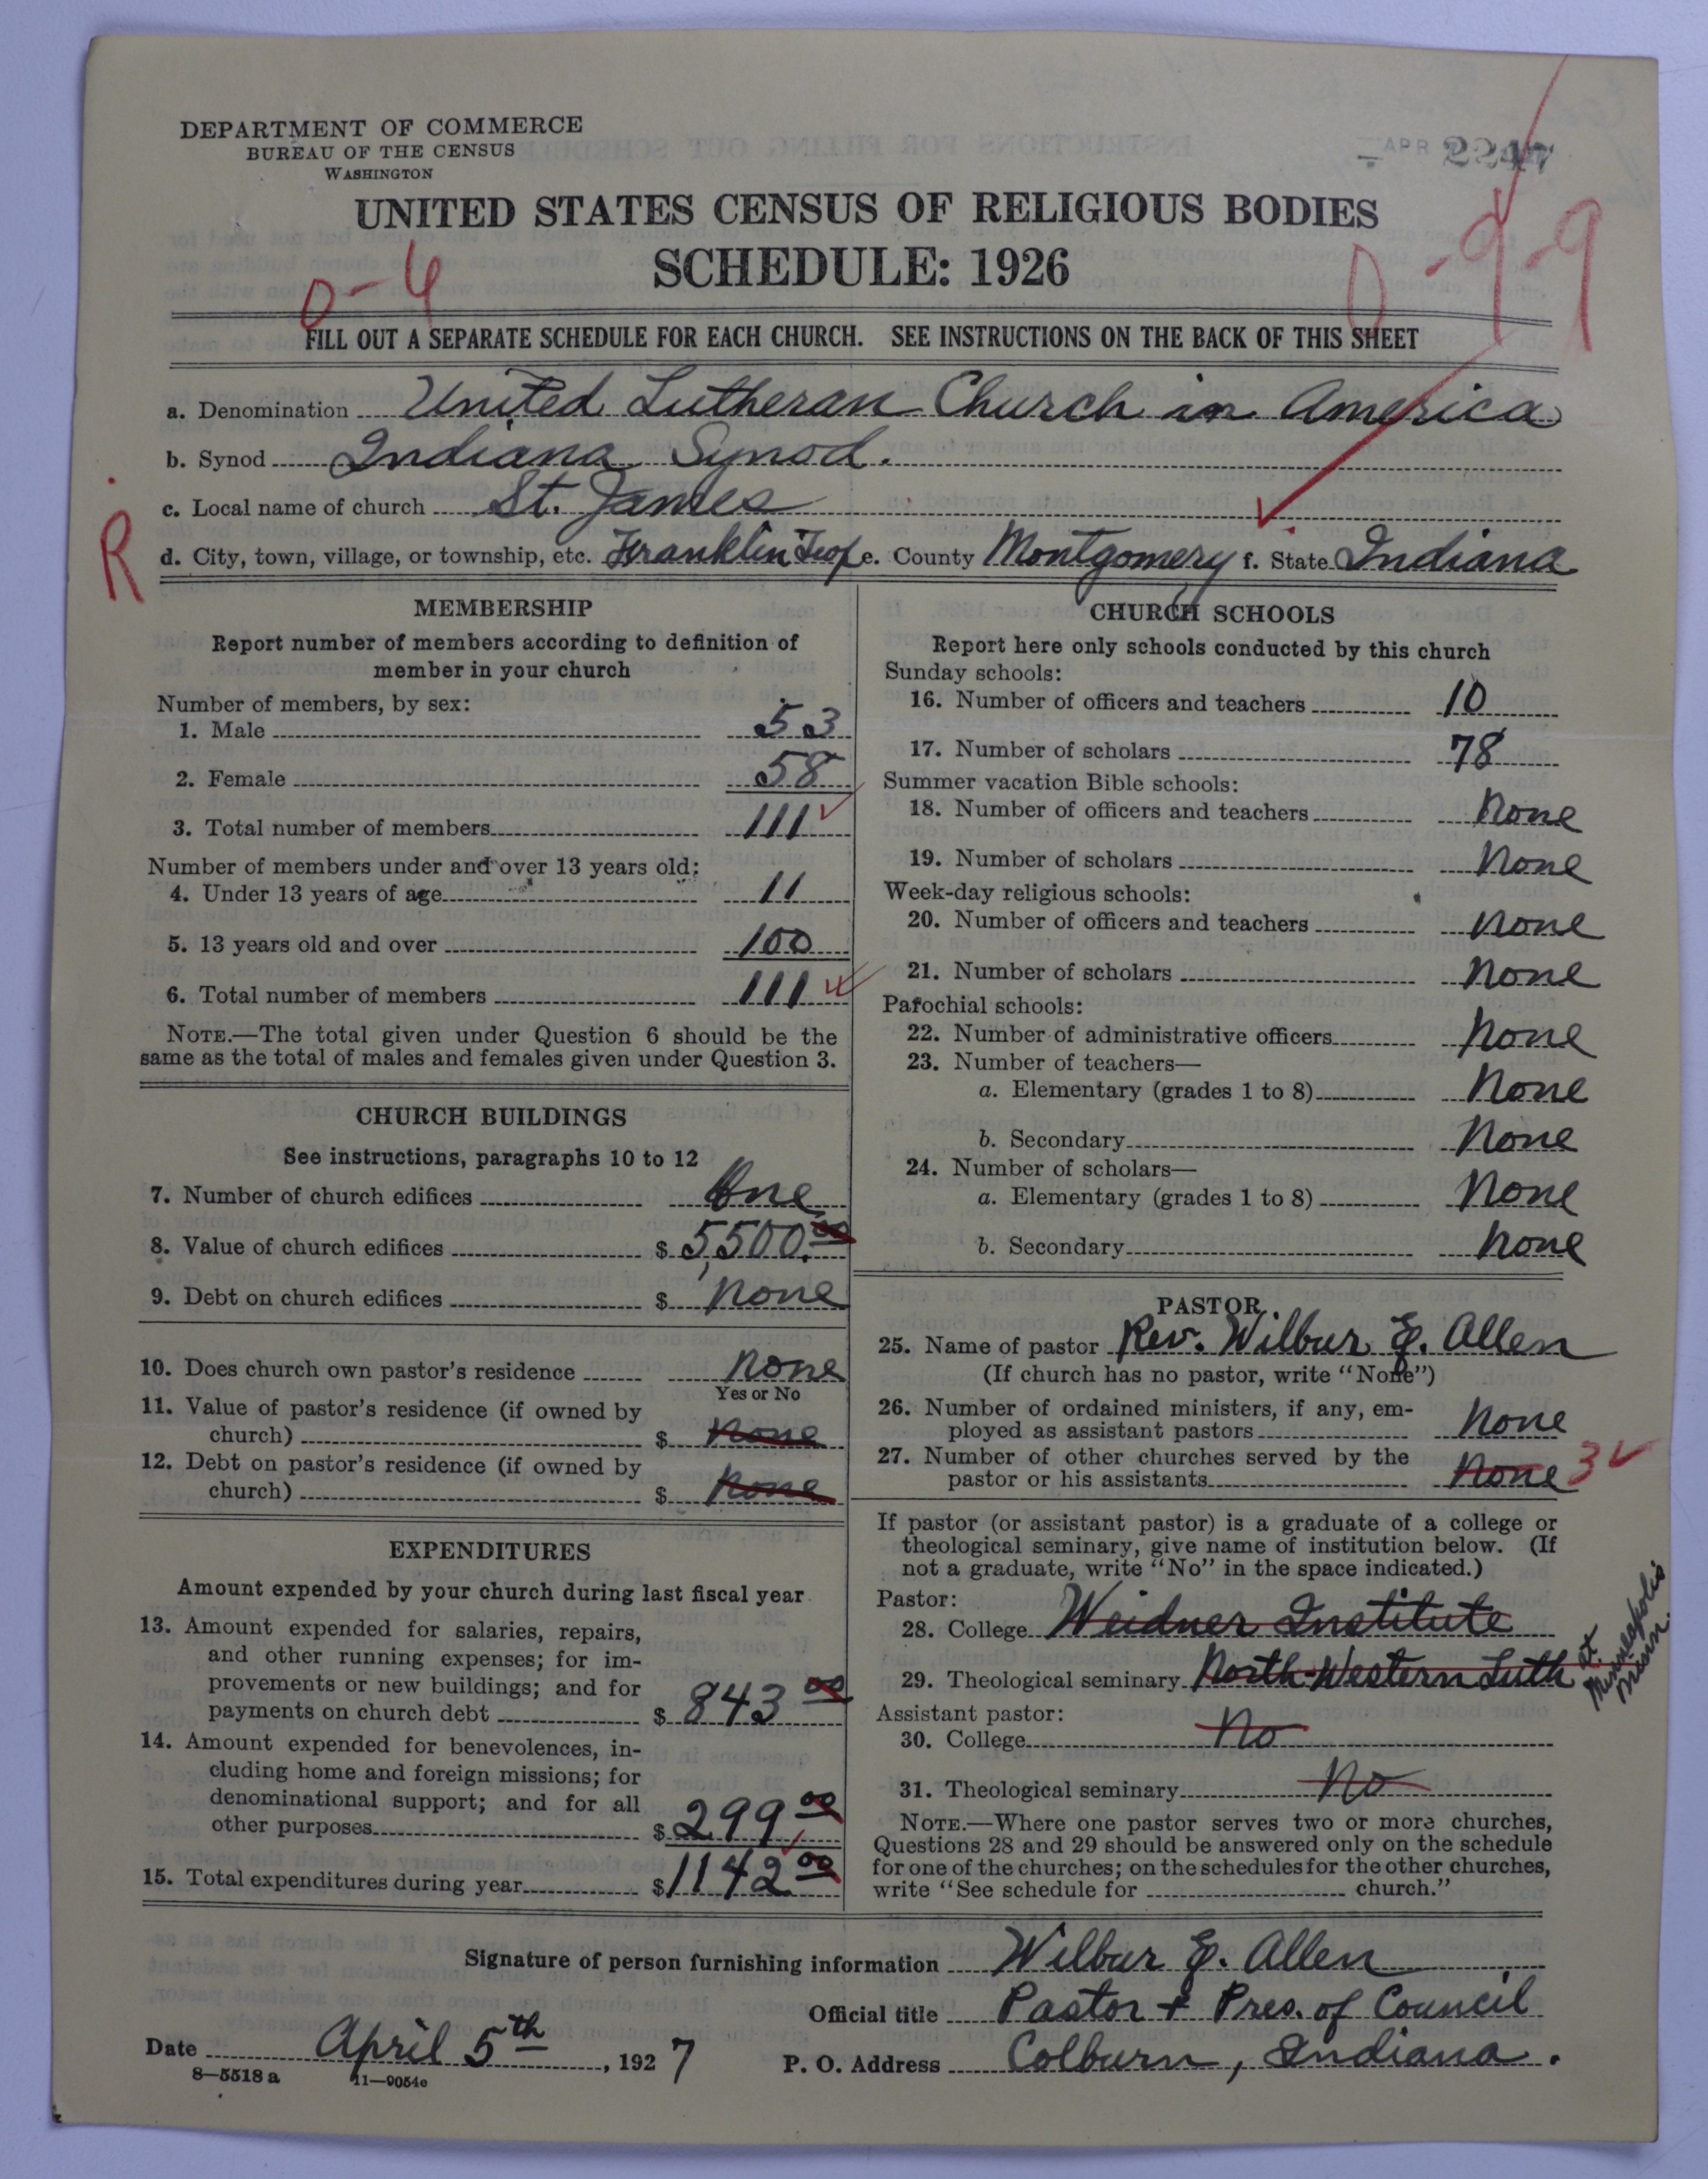 DEPARTMENT OF COMMERCE
BUREAU OF THE CENSUS
WASHINGTON
APR 2247
UNITED STATES CENSUS OF RELIGIOUS BODIES
SCHEDULE: 1926
0-4
0-9-9
FILL OUT A SEPARATE SCHEDULE FOR EACH CHURCH. SEE INSTRUCTIONS ON THE BACK OF THIS SHEET
a. Denomination United Lutheran Church in America
b. Synod Indiana Synod.
c. Local name of church St. James
R
d. City, town, village, or township, etc. Franklin Twp e. County Montgomery f. State Indiana
MEMBERSHIP
Report number of members according to definition of
member in your church
Number of members, by sex:
1. Male 53
2. Female 58
3. Total number of members 111
Number of members under and over 13 years old:
4. Under 13 years of age 11
5. 13 years old and over 100
6. Total number of members 111
NOTE.—The total given under Question 6 should be the
same as the total of males and females given under Question 3.
CHURCH BUILDINGS
See instructions, paragraphs 10 to 12
7. Number of church edifices One
8. Value of church edifices $ 5,500.00
9. Debt on church edifices $ None
10. Does church own pastor's residence None
Yes or No
11. Value of pastor's residence (if owned by
church) $ None
12. Debt on pastor's residence (if owned by
church) $ None
EXPENDITURES
Amount expended by your church during last fiscal year
13. Amount expended for salaries, repairs,
and other running expenses; for im-
provements or new buildings; and for
payments on church debt $ 843 00
14. Amount expended for benevolences, in-
cluding home and foreign missions; for
denominational support; and for all
other purposes $ 299 00
15. Total expenditures during year $ 1142 00
CHURCH SCHOOLS
Report here only schools conducted by this church
Sunday schools:
16. Number of officers and teachers 10
17. Number of scholars 78
Summer vacation Bible schools:
18. Number of officers and teachers None
19. Number of scholars None
Week-day religious schools:
20. Number of officers and teachers None
21. Number of scholars None
Parochial schools:
22. Number of administrative officers None
23. Number of teachers—
a. Elementary (grades 1 to 8) None
b. Secondary None
24. Number of scholars—
a. Elementary (grades 1 to 8) None
b. Secondary None
PASTOR
25. Name of pastor Rev. Wilbur E. Allen
(If church has no pastor, write "None")
26. Number of ordained ministers, if any, em-
ployed as assistant pastors None
27. Number of other churches served by the
pastor or his assistants None 3
If pastor (or assistant pastor) is a graduate of a college or
theological seminary, give name of institution below. (If
not a graduate, write "No" in the space indicated.)
Pastor:
28. College Weidner Institute
29. Theological seminary North-Western Luth at Minneapolis Minn.
Assistant pastor:
30. College No
31. Theological seminary No
NOTE.—Where one pastor serves two or more churches,
Questions 28 and 29 should be answered only on the schedule
for one of the churches; on the schedules for the other churches,
write "See schedule for church."
Signature of person furnishing information Wilbur E. Allen
Official title Pastor + Pres. of Council
Date April 5th, 1927 P. O. Address Colburn, Indiana.
8—5518 a 11—9054e